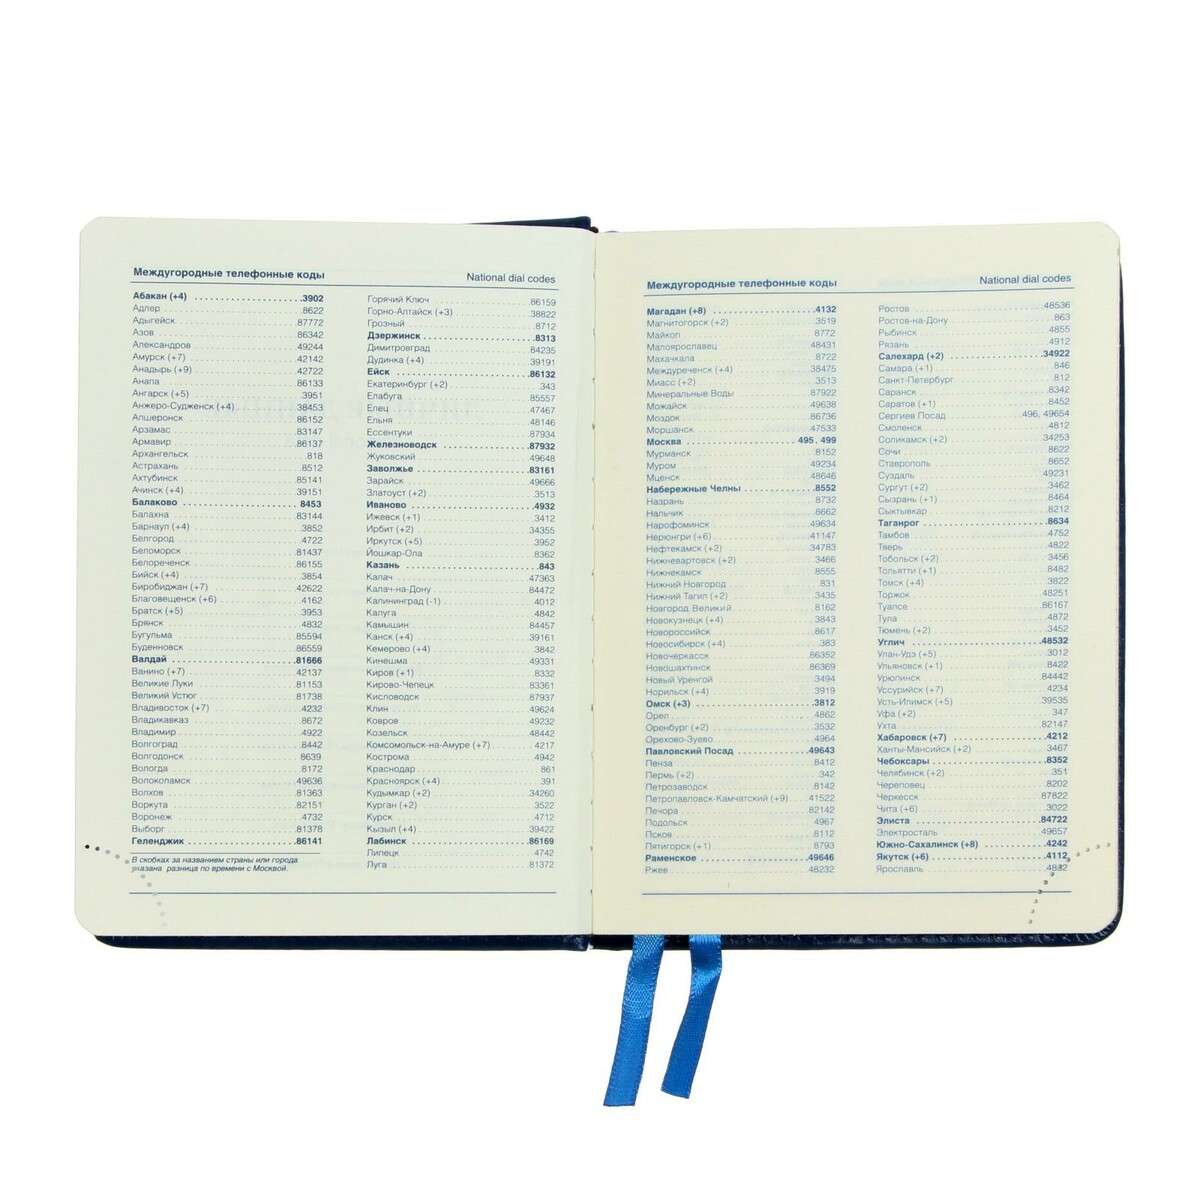 Междугородные телефонные коды National dial codes
Абакан (+4) 3902
Адлер 8622
Адыгейск 87772
Азов 86342
Александров 49244
Амурск (+7) 42142
Анадырь (+9) 42722
Анапа 86133
Ангарск (+5) 3951
Анжеро-Судженск (+4) 38453
Апшеронск 86152
Арзамас 83147
Армавир 86137
Архангельск 818
Астрахань 8512
Ахтубинск 85141
Ачинск (+4) 39151
Балаково 8453
Балахна 83144
Барнаул (+4) 3852
Белгород 4722
Беломорск 81437
Белореченск 86155
Бийск (+4) 3854
Биробиджан (+7) 42622
Благовещенск (+6) 4162
Братск (+5) 3953
Брянск 4832
Бугульма 85594
Буденновск 86559
Валдай 81666
Ванино (+7) 42137
Великие Луки 81153
Великий Устюг 81738
Владивосток (+7) 4232
Владикавказ 8672
Владимир 4922
Волгоград 8442
Волгодонск 8639
Вологда 8172
Волоколамск 49636
Волхов 81363
Воркута 82151
Воронеж 4732
Выборг 81378
Геленджик 86141
В скобках за названием страны или города
указана разница по времени с Москвой.
Горячий Ключ 86159
Горно-Алтайск (+3) 38822
Грозный 8712
Дзержинск 8313
Димитровград 84235
Дудинка (+4) 39191
Ейск 86132
Екатеринбург (+2) 343
Елабуга 85557
Елец 47467
Ельня 48146
Ессентуки 87934
Железноводск 87932
Жуковский 49648
Заволжье 83161
Зарайск 49666
Златоуст (+2) 3513
Иваново 4932
Ижевск (+1) 3412
Ирбит (+2) 34355
Иркутск (+5) 3952
Йошкар-Ола 8362
Казань 843
Калач 47363
Калач-на-Дону 84472
Калининград (-1) 4012
Калуга 4842
Камышин 84457
Канск (+4) 39161
Кемерово (+4) 3842
Кинешма 49331
Киров (+1) 8332
Кирово-Чепецк 83361
Кисловодск 87937
Клин 49624
Ковров 49232
Козельск 48442
Комсомольск-на-Амуре (+7) 4217
Кострома 4942
Краснодар 861
Красноярск (+4) 391
Кудымкар (+2) 34260
Курган (+2) 3522
Курск 4712
Кызыл (+4) 39422
Лабинск 86169
Липецк 4742
Луга 81372
Междугородные телефонные коды National dial codes
Магадан (+8) 4132
Магнитогорск (+2) 3519
Майкоп 8772
Малоярославец 48431
Махачкала 8722
Междуреченск (+4) 38475
Миасс (+2) 3513
Минеральные Воды 87922
Можайск 49638
Моздок 86736
Моршанск 47533
Москва 495, 499
Мурманск 8152
Муром 49234
Мценск 48646
Набережные Челны 8552
Назрань 8732
Нальчик 8662
Нарофоминск 49634
Нерюнгри (+6) 41147
Нефтекамск (+2) 34783
Нижневартовск (+2) 3466
Нижнекамск 8555
Нижний Новгород 831
Нижний Тагил (+2) 3435
Новгород Великий 8162
Новокузнецк (+4) 3843
Новороссийск 8617
Новосибирск (+4) 383
Новочеркасск 86352
Новошахтинск 86369
Новый Уренгой 3494
Норильск (+4) 3919
Омск (+3) 3812
Орел 4862
Оренбург (+2) 3532
Орехово-Зуево 4964
Павловский Посад 49643
Пенза 8412
Пермь (+2) 342
Петрозаводск 8142
Петропавловск-Камчатский (+9) 41522
Печора 82142
Подольск 4967
Псков 8112
Пятигорск (+1) 8793
Раменское 49646
Ржев 48232
Ростов 48536
Ростов-на-Дону 863
Рыбинск 4855
Рязань 4912
Салехард (+2) 34922
Самара (+1) 846
Санкт-Петербург 812
Саранск 8342
Саратов (+1) 8452
Сергиев Посад 496, 49654
Смоленск 4812
Соликамск (+2) 34253
Сочи 8622
Ставрополь 8652
Суздаль 49231
Сургут (+2) 3462
Сызрань (+1) 8464
Сыктывкар 8212
Таганрог 8634
Тамбов 4752
Тверь 4822
Тобольск (+2) 3456
Тольятти (+1) 8482
Томск (+4) 3822
Торжок 48251
Туапсе 86167
Тула 4872
Тюмень (+2) 3452
Углич 48532
Улан-Удэ (+5) 3012
Ульяновск (+1) 8422
Урюпинск 84442
Уссурийск (+7) 4234
Усть-Илимск (+5) 39535
Уфа (+2) 347
Ухта 82147
Хабаровск (+7) 4212
Ханты-Мансийск (+2) 3467
Чебоксары 8352
Челябинск (+2) 351
Череповец 8202
Черкесск 87822
Чита (+6) 3022
Элиста 84722
Электросталь 49657
Южно-Сахалинск (+8) 4242
Якутск (+6) 4112
Ярославль 4832